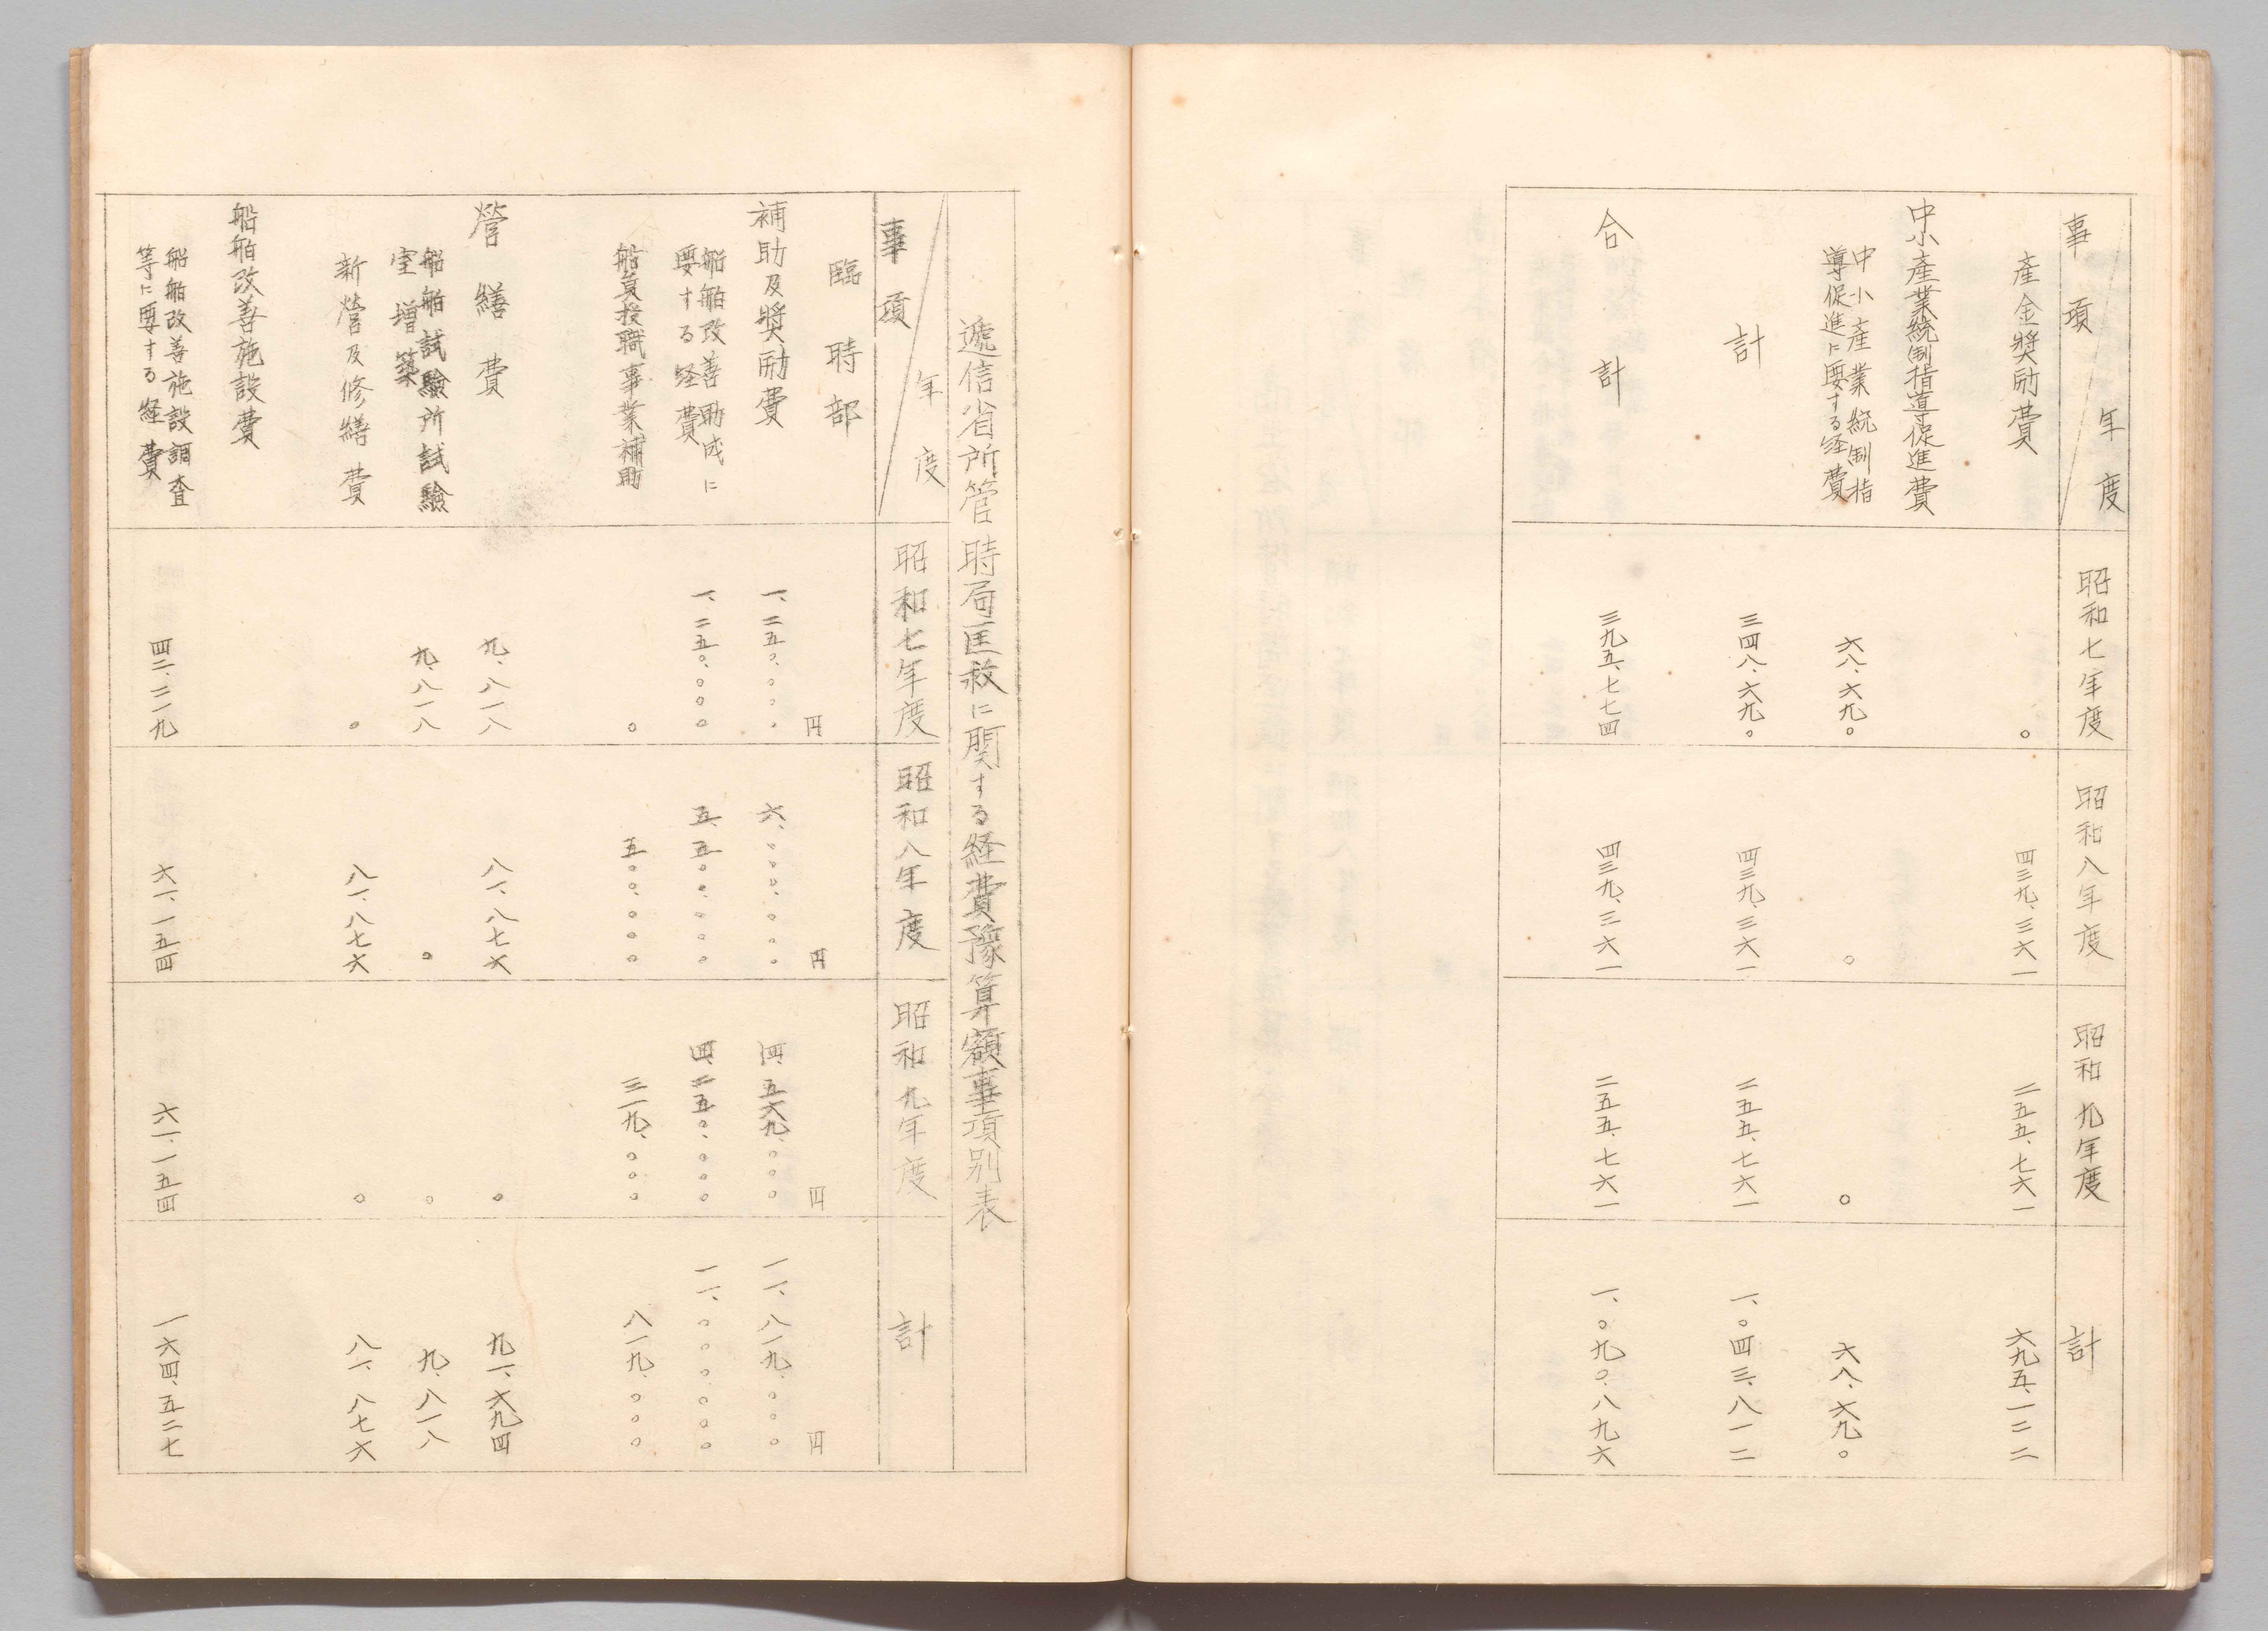 事項 年度 昭和七年度 昭和八年度 昭和九年度 計
産金奬励費 〇 四三九、三六一 二五五、七六一 六九五、一二二
中小産業統制指導促進費
中小産業統制指
導促進に要する経費 六八、六九〇 〇 〇 六八、六九〇
計 三四八、六九〇 四三九、三六一 二五五、七六一 一、〇四三、八一二
合計 三九五、七七四 四三九、三六一 二五五、七六一 一、〇九〇、八九六
遞信省所管時局匡救に関する経費豫算額事項別表
事項 年度 昭和七年度 昭和八年度 昭和九年度 計
臨時部 円 円 円 円
補助及奬励費 一、二五〇、〇〇〇 六、〇〇〇、〇〇〇 四、五六九、〇〇〇 一一、八一九、〇〇〇
船舶改善助成に
要する経費 一、二五〇、〇〇〇 五、五〇〇、〇〇〇 四、二五〇、〇〇〇 一一、〇〇〇、〇〇〇
船員授職事業補助 〇 五〇〇、〇〇〇 三一九、〇〇〇 八一九、〇〇〇
營繕費 九、八一八 八一、八七六 〇 九一、六九四
船舶試驗所試驗
室增築 九、八一八 〇 〇 九、八一八
新營及修繕費 〇 八一、八七六 〇 八一、八七六
船舶改善施設費
船舶改善施設調査
等に要する経費 四二、二一九 六一、一五四 六一、一五四 一六四、五二七